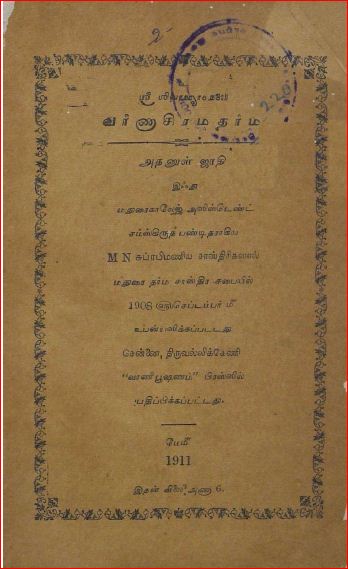 வர்ணாசிரம தர்ம
அதனுள் ஜாதி
இஃது
மதுரைகாலேஜ் அஸிஸ்டெண்ட்
சம்ஸ்கிருத பண்டிதராகிய
M N சுப்ரமணிய சாஸ்திரிகளால்
மதுரை தர்ம சாஸ்திர சபையில்
1908 ௵செப்டம்பர் ௴
உபன்யஸிக்கப்பட்டது
சென்னை, திருவல்லிக்கேணி
“வாணீபூஷணம்” பிரஸ்ஸில்
பதிப்பிக்கப்பட்டது.
மே௴
1911
இதன் விலை அணா 6.